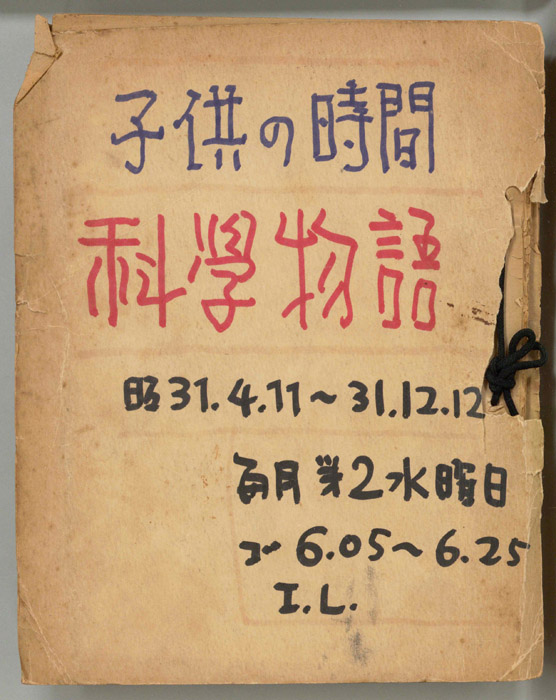 子供の時間
科學物語
昭31.4.11～31.12.12
毎月第2水曜日
ゴ 6.05～6.25
I.L.